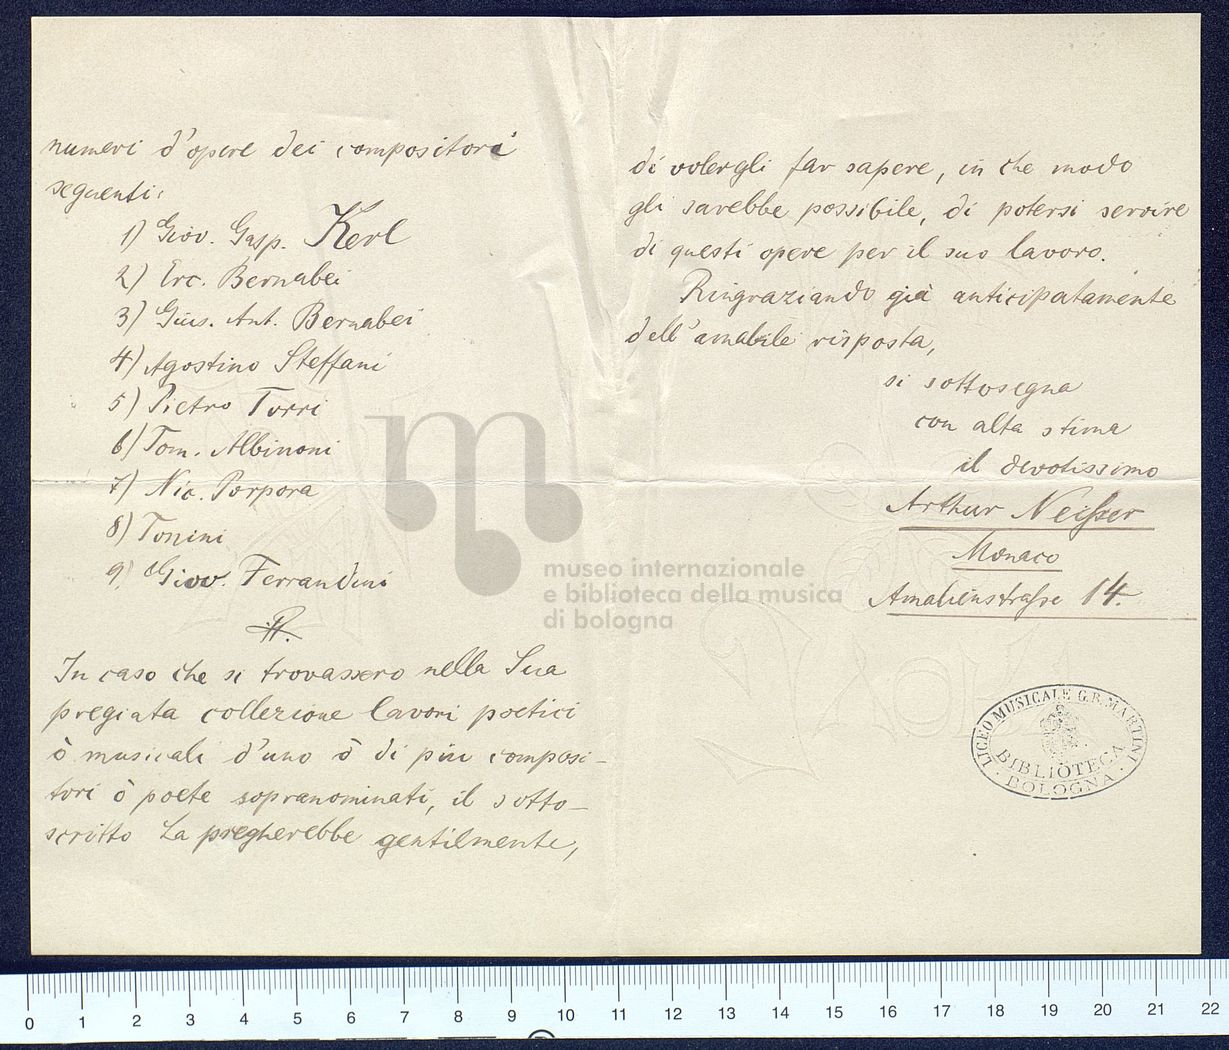 numeri d'opere dei compositori
seguenti:
1) Giov. Gasp. Kerl
2) Erc. Bernabei
3) Gius. Ant. Bernabei
4) Agostino Steffani
5) Pietro Torri
6) Tom. Albinoni
7) Nic. Porpora
8) Tonini
9) Giov. Ferrandini
In caso che si trovassero nella Sua
pregiata collezione lavori poetici
ò musicali d'uno ò di più composi-
tori ò poete sopranominati, il sotto-
scritto La pregherebbe gentilmente,
di volergli far sapere, in che modo
gli sarebbe possibile, di potersi servire
di questi opere per il suo lavoro.
Ringraziando già anticipatamente
dell'amabile risposta,
si sottosegna
con alta stima
il devotissimo
Arthur Neißer
Monaco
Amalienstraße 14.
LICEO MUSICALE G.B. MARTINI
BIBLIOTECA
BOLOGNA
museo internazionale
e biblioteca della musica
di bologna
0 1 2 3 4 5 6 7 8 9 10 11 12 13 14 15 16 17 18 19 20 21 22